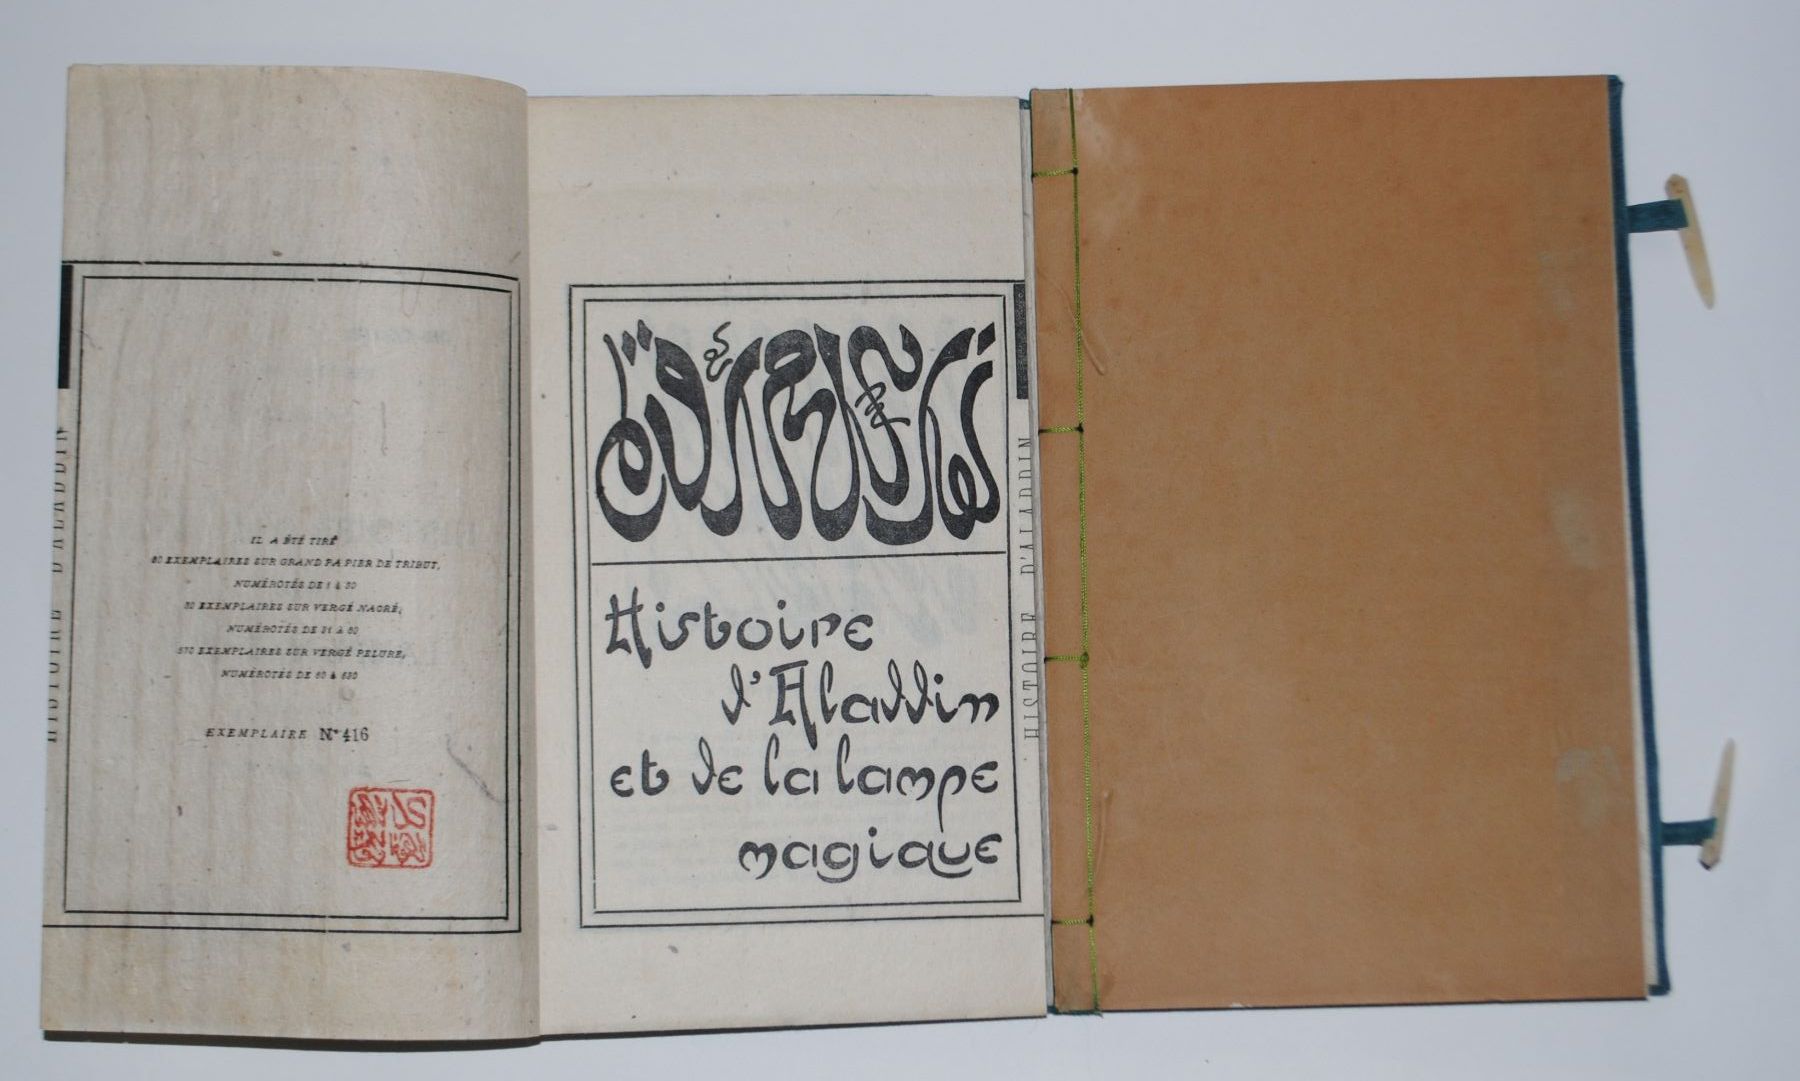 HISTOIRE D'ALADDIN
IL A ÉTÉ TIRÉ
EXEMPLAIRES SUR GRAND PAPIER DE TRIBUT,
NUMÉROTÉS DE 1 à 30
30 EXEMPLAIRES SUR VERGÉ NACRÉ,
NUMÉROTÉS DE 31 à 60
570 EXEMPLAIRES SUR VERGÉ PELURE,
NUMÉROTÉS DE 60 à 630
EXEMPLAIRE N° 416
Histoire
d'Aladdin
et de la lampe
magique
HISTOIRE D'ALADDIN